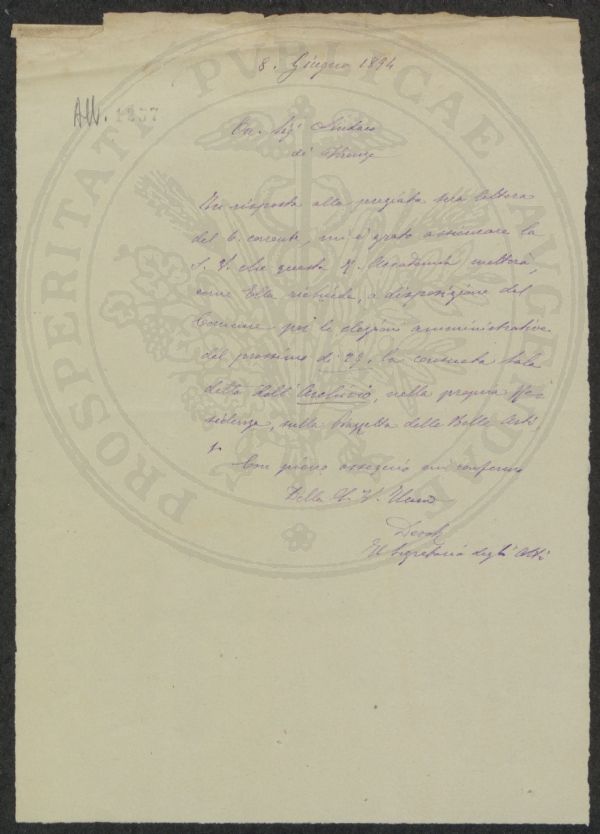 8. Giugno 1894
All. 1257
On. Sig. Sindaco
di Firenze
In risposta alla pregiata sua lettera
del 6. corrente, mi è grato assicurare la
S. V. che questa R. Accademia metterà,
come Ella richiede, a disposizione del
Comune per le elezioni amministrative
del prossimo dì 29, la consueta Sala
detta dell' Archivio, nella propria Re=
sidenza, sulla Piazzetta delle Belle Arti
Con pieno ossequio mi confermo
Della S. V. Illma
Il Segretario degli Atti
PROSPERITATI PVBLICAE AVGENDAE